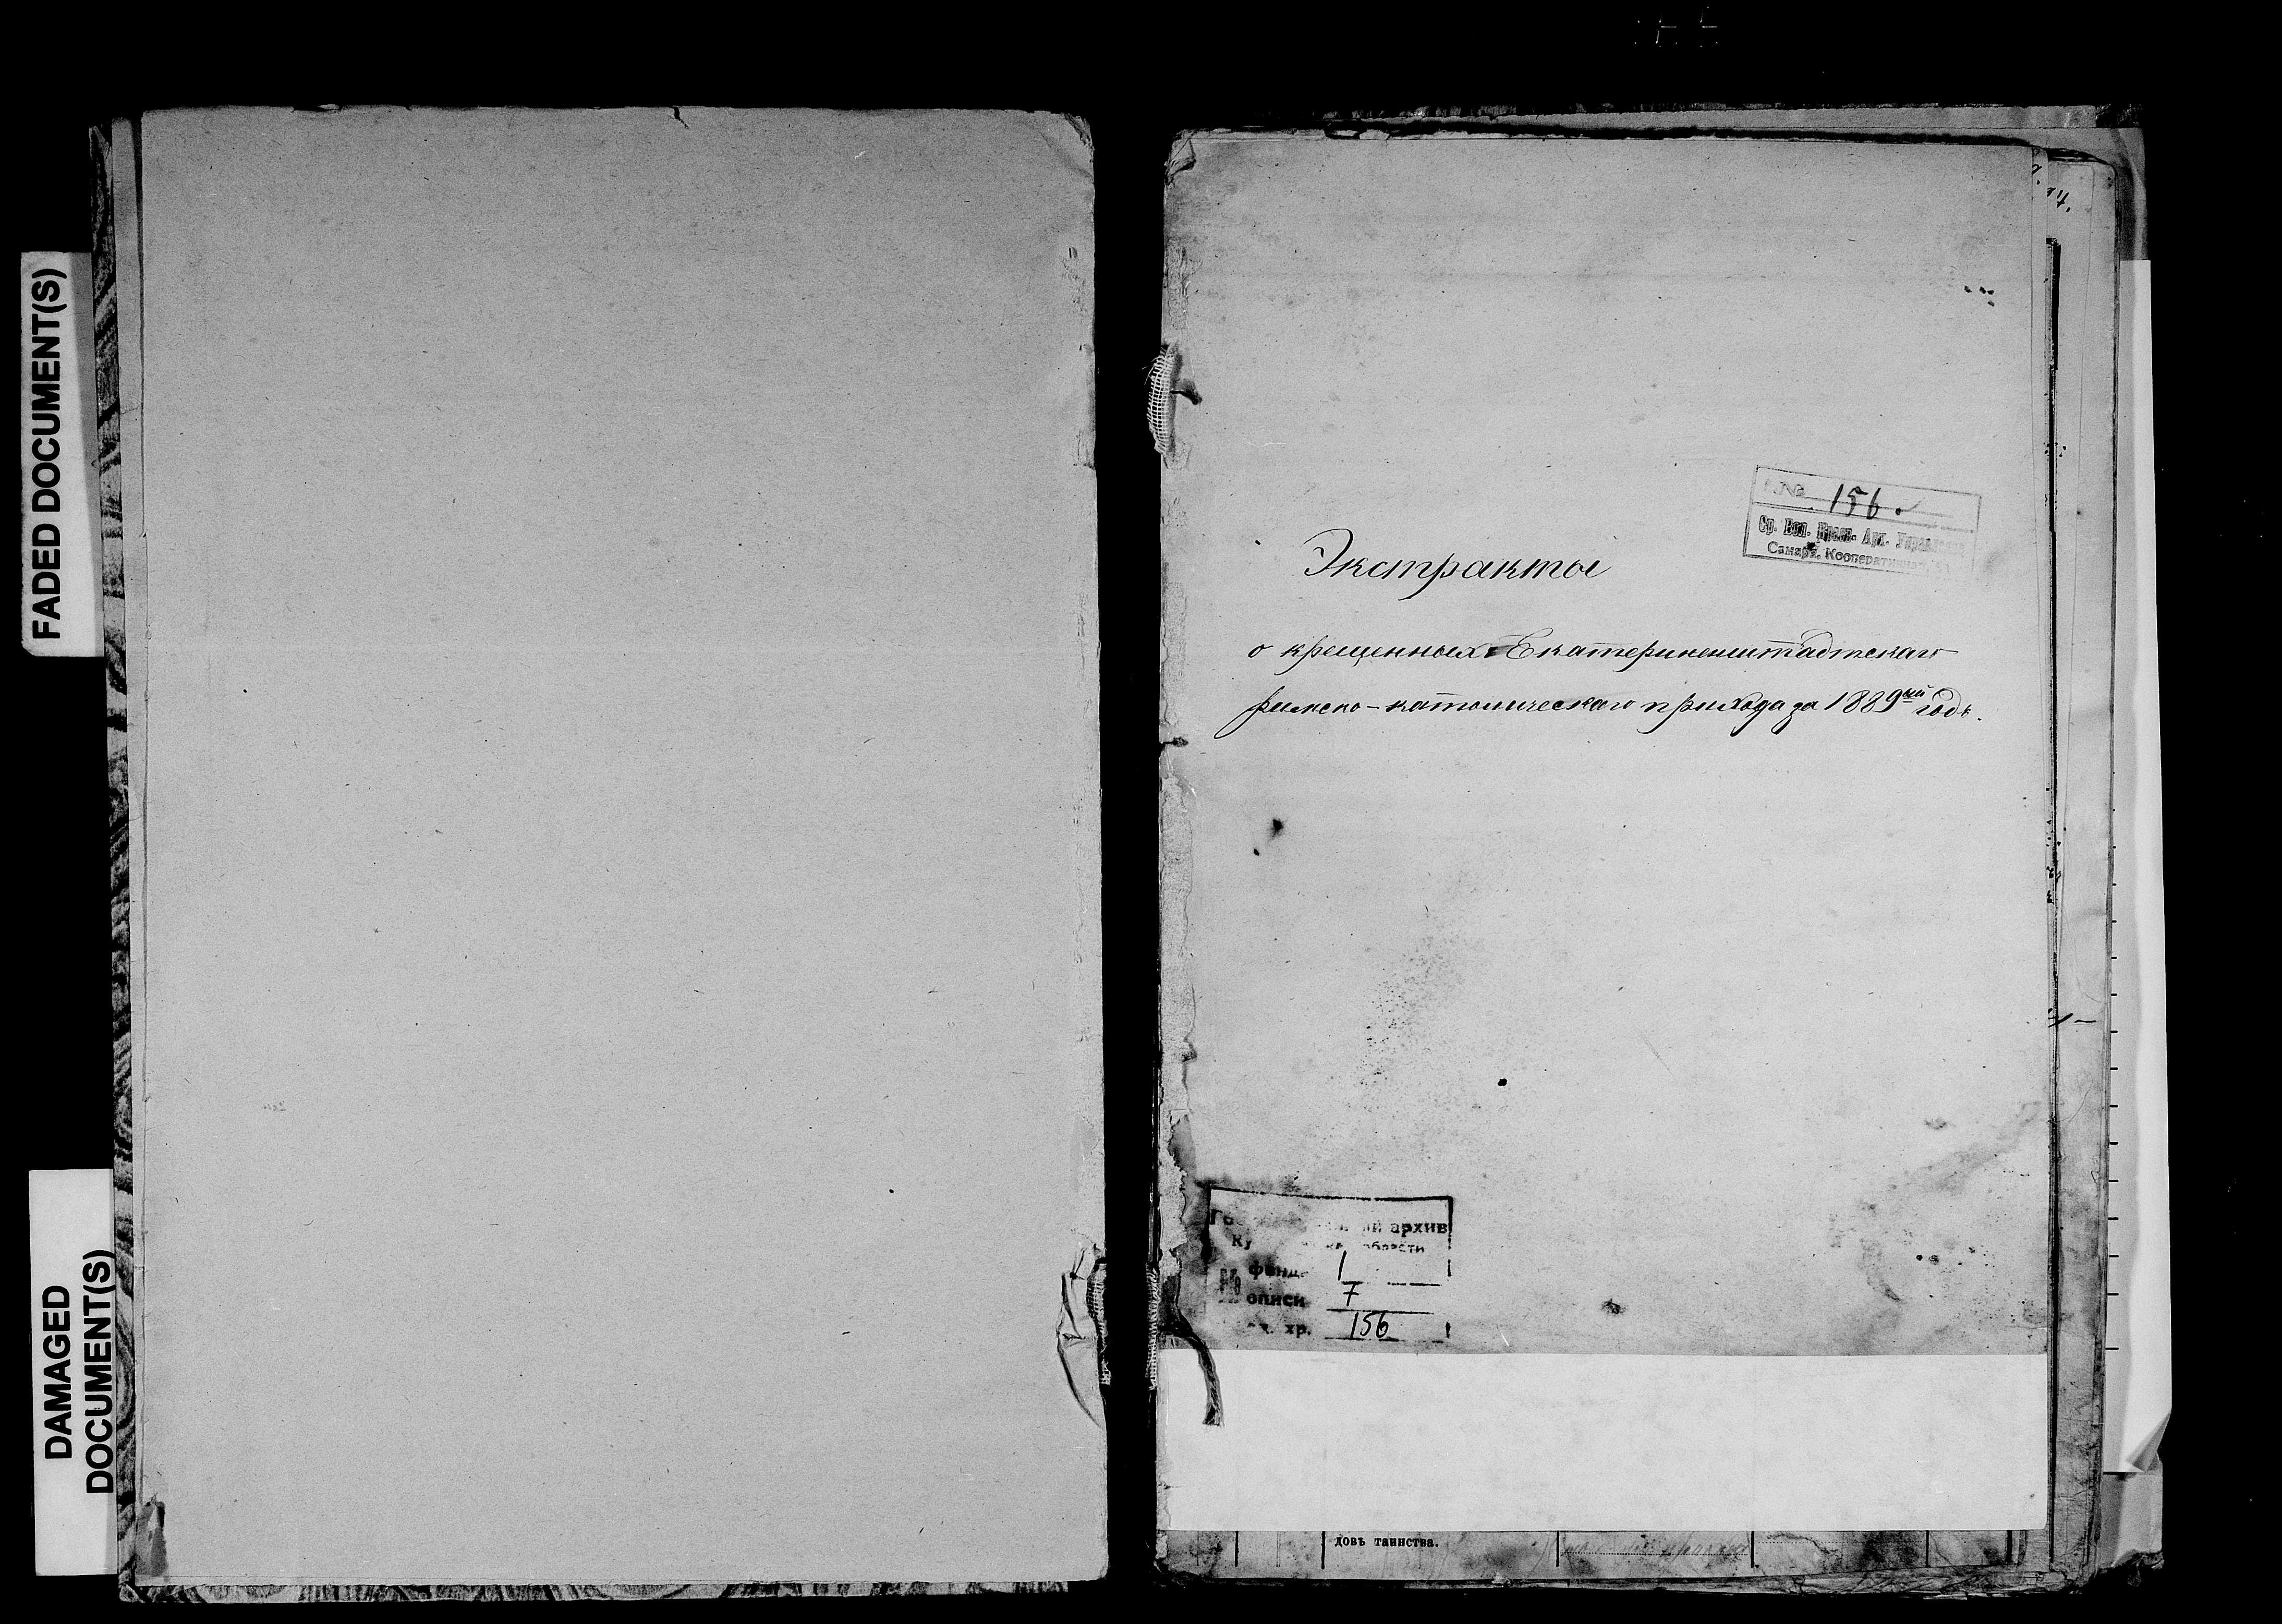 FADED DOCUMENT(S)
DAMAGED
DOCUMENT(S)
156.
Ср. Вол. Арх.
Самара, Кооперативная
Экстракты
о крещенныхъ Екатериненштадтскаго
римско-католическаго прихода за 1889ый годъ.
архив
области
фонд 1
№ описи 7
хр. 156
довъ таинства.